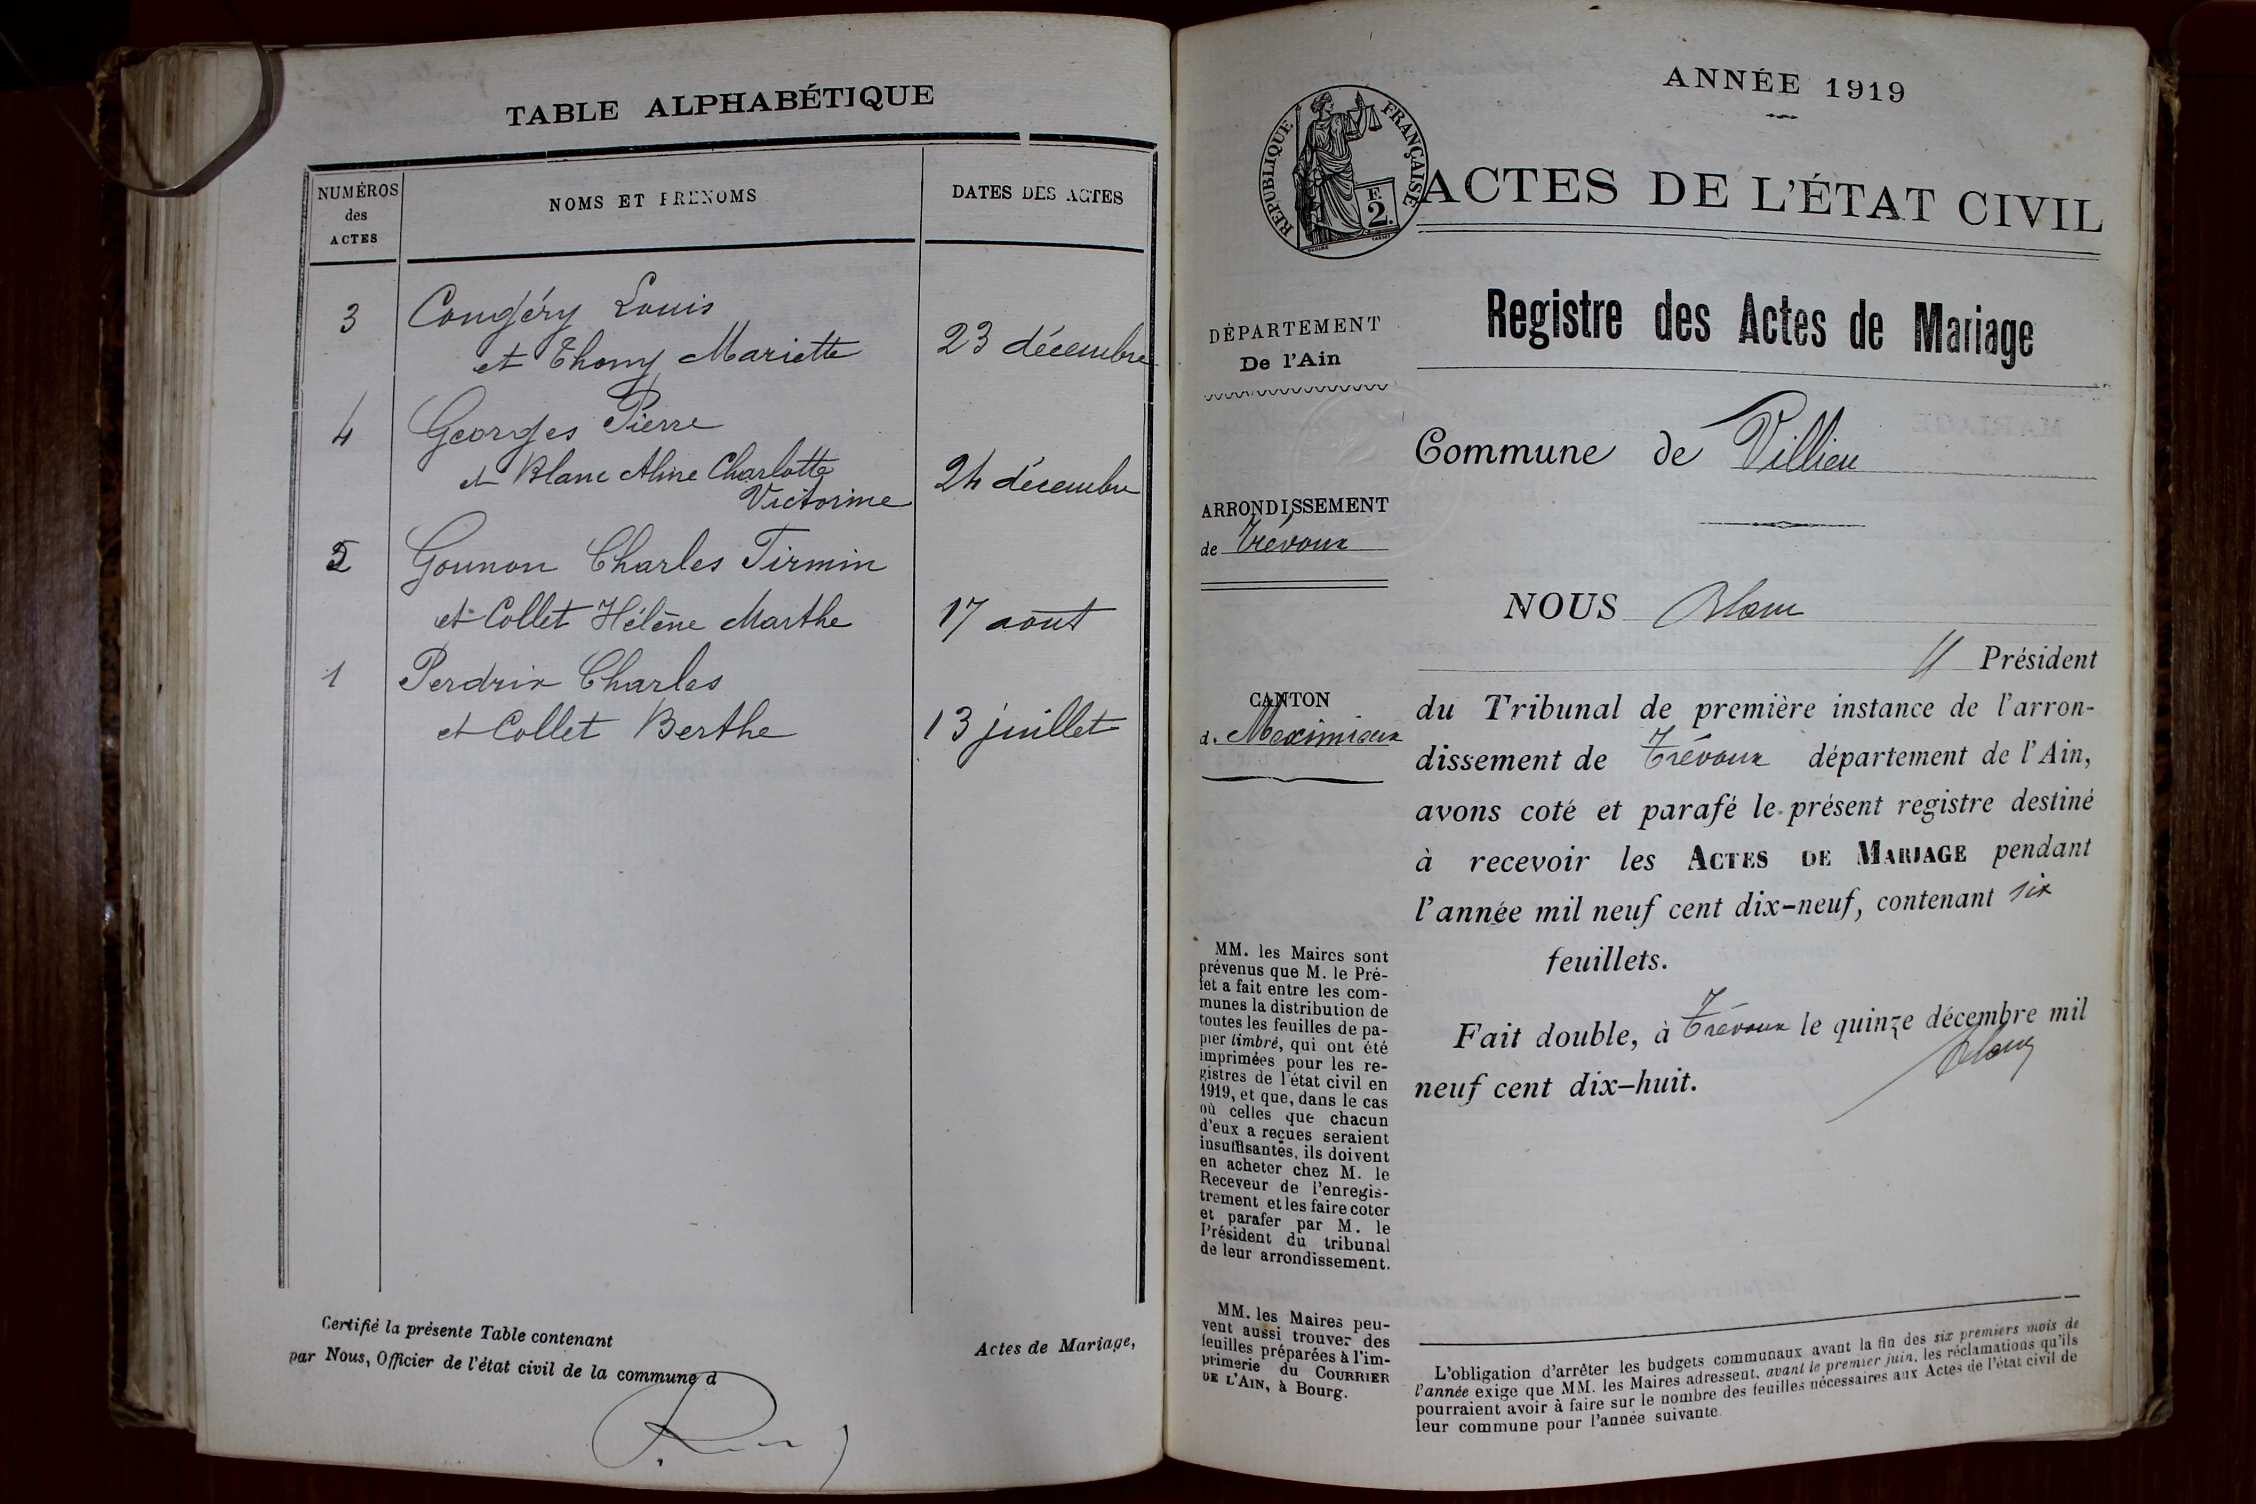 TABLE ALPHABÉTIQUE
NUMÉROS des ACTES
NOMS ET PRENOMS
DATES DES ACTES
3 Congéry Louis
et Thomy Mariette 23 décembre
4 Georges Pierre
et Blanc Aline Charlotte
Victorine 24 décembre
2 Gounon Charles Firmin
et Collet Hélène Marthe 17 août
1 Perdrix Charles
et Collet Berthe 13 juillet
Certifié la présente Table contenant Actes de Mariage,
par Nous, Officier de l'état civil de la commune d
ANNÉE 1919
RÉPUBLIQUE FRANÇAISE
F. 2.
ACTES DE L'ÉTAT CIVIL
Registre des Actes de Mariage
DÉPARTEMENT
De l'Ain
Commune de Villieu
ARRONDISSEMENT
de Trévoux
CANTON
d. Meximieux
NOUS Blanc
Président
du Tribunal de première instance de l'arron-
dissement de Trévoux département de l'Ain,
avons coté et parafé le présent registre destiné
à recevoir les ACTES DE MARIAGE pendant
l'année mil neuf cent dix-neuf, contenant six
feuillets.
Fait double, à Trévoux le quinze décembre mil
neuf cent dix-huit.
Blanc
MM. les Maires sont
prévenus que M. le Pré-
fet a fait entre les com-
munes la distribution de
toutes les feuilles de pa-
pier timbré, qui ont été
imprimées pour les re-
gistres de l'état civil en
1919, et que, dans le cas
où celles que chacun
d'eux a reçues seraient
insuffisantes, ils doivent
en acheter chez M. le
Receveur de l'enregis-
trement et les faire coter
et parafer par M. le
Président du tribunal
de leur arrondissement.
MM. les Maires peu-
vent aussi trouver des
feuilles préparées à l'im-
primerie du COURRIER
DE L'AIN, à Bourg.
L'obligation d'arrêter les budgets communaux avant la fin des six premiers mois de
l'année exige que MM. les Maires adressent, avant le premier juin, les réclamations qu'ils
pourraient avoir à faire sur le nombre des feuilles nécessaires aux Actes de l'état civil de
leur commune pour l'année suivante.